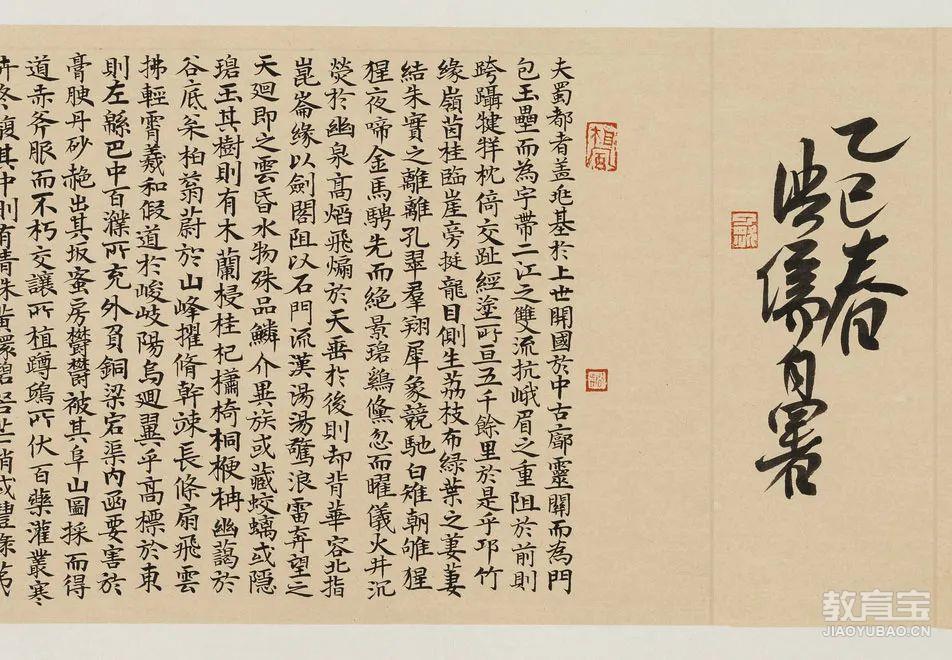 乙巳春
儒自署
夫蜀都者盖兆基於上世開國於中古廓靈關而為門
包玉壘而為宇帶二江之雙流抗峨眉之重阻於前則
跨躡犍牂枕倚交趾經塗所亘五千餘里於是乎邛竹
緣嶺茵桂臨崖旁挺龍目側生荔枝布綠葉之萋萋
結朱實之離離孔翠羣翔犀象競馳白雉朝雊猩
猩夜啼金馬騁先而絕景碧鷄儵忽而曜儀火井沉
熒於幽泉高焰飛煽於天垂於後則却背華容北指
崑崙緣以劍閣阻以石門流漢湯湯驚浪雷奔望之
天迴即之雲昏水物殊品鱗介異族或藏蛟螭或隱
碧玉其樹則有木蘭梫桂杞櫹椅桐椶枒幽藹於
谷底枀柏蓊蔚於山峰擢脩幹竦長條扇飛雲
拂輕霄羲和假道於峻岐陽烏迴翼乎高標於東
則左緜巴中百濮所充外負銅梁宕渠內函要害於
膏腴丹砂赩出其坂蜜房欝欝被其阜山圖採而得
道赤斧服而不朽交讓所植蹲鴟所伏百藥灌叢寒
卉冬馥其中則有青珠黃環碧砮芒消或豐綠荑
教育宝
JIAOYUBAO.CN